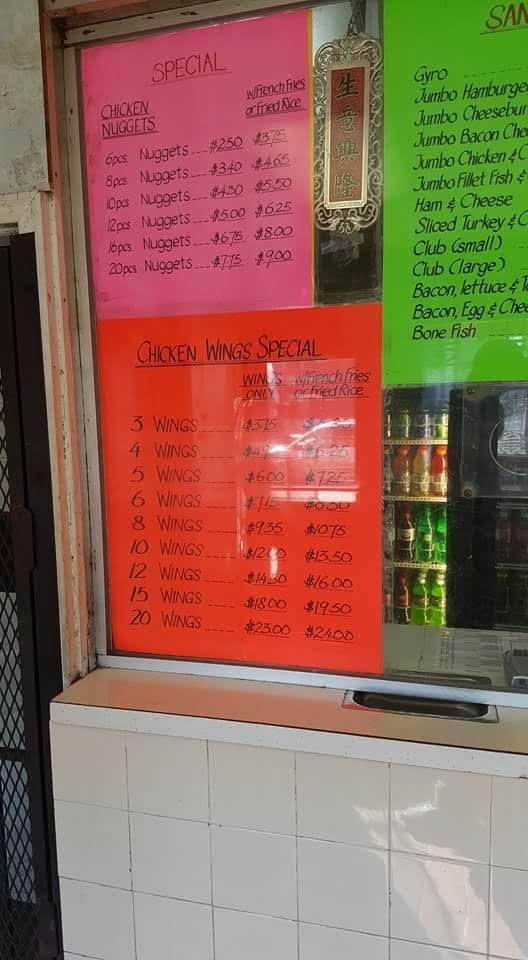 SPECIAL
CHICKEN NUGGETS
w/French Fries or Fried Rice
6pcs. Nuggets $2.50 $3.75
8pcs. Nuggets $3.40 $4.65
10pcs Nuggets $4.30 $5.50
12pcs Nuggets $5.00 $6.25
16pcs. Nuggets $6.75 $8.00
20pcs Nuggets $7.75 $9.00
生意興隆
CHICKEN WINGS SPECIAL
WINGS ONLY
w/French Fries or Fried Rice
3 WINGS $3.75
4 WINGS $6.25
5 WINGS $6.00 $7.25
6 WINGS $7.15
8 WINGS $9.35 $10.75
10 WINGS $13.50
12 WINGS $16.00
15 WINGS $18.00 $19.50
20 WINGS $23.00 $24.00
SAN
Gyro
Jumbo Hamburge
Jumbo Cheesebur
Jumbo Bacon Che
Jumbo Chicken & C
Jumbo Fillet Fish &
Ham & Cheese
Sliced Turkey & C
Club (small)
Club (large)
Bacon, lettuce & To
Bacon, Egg & Chee
Bone Fish